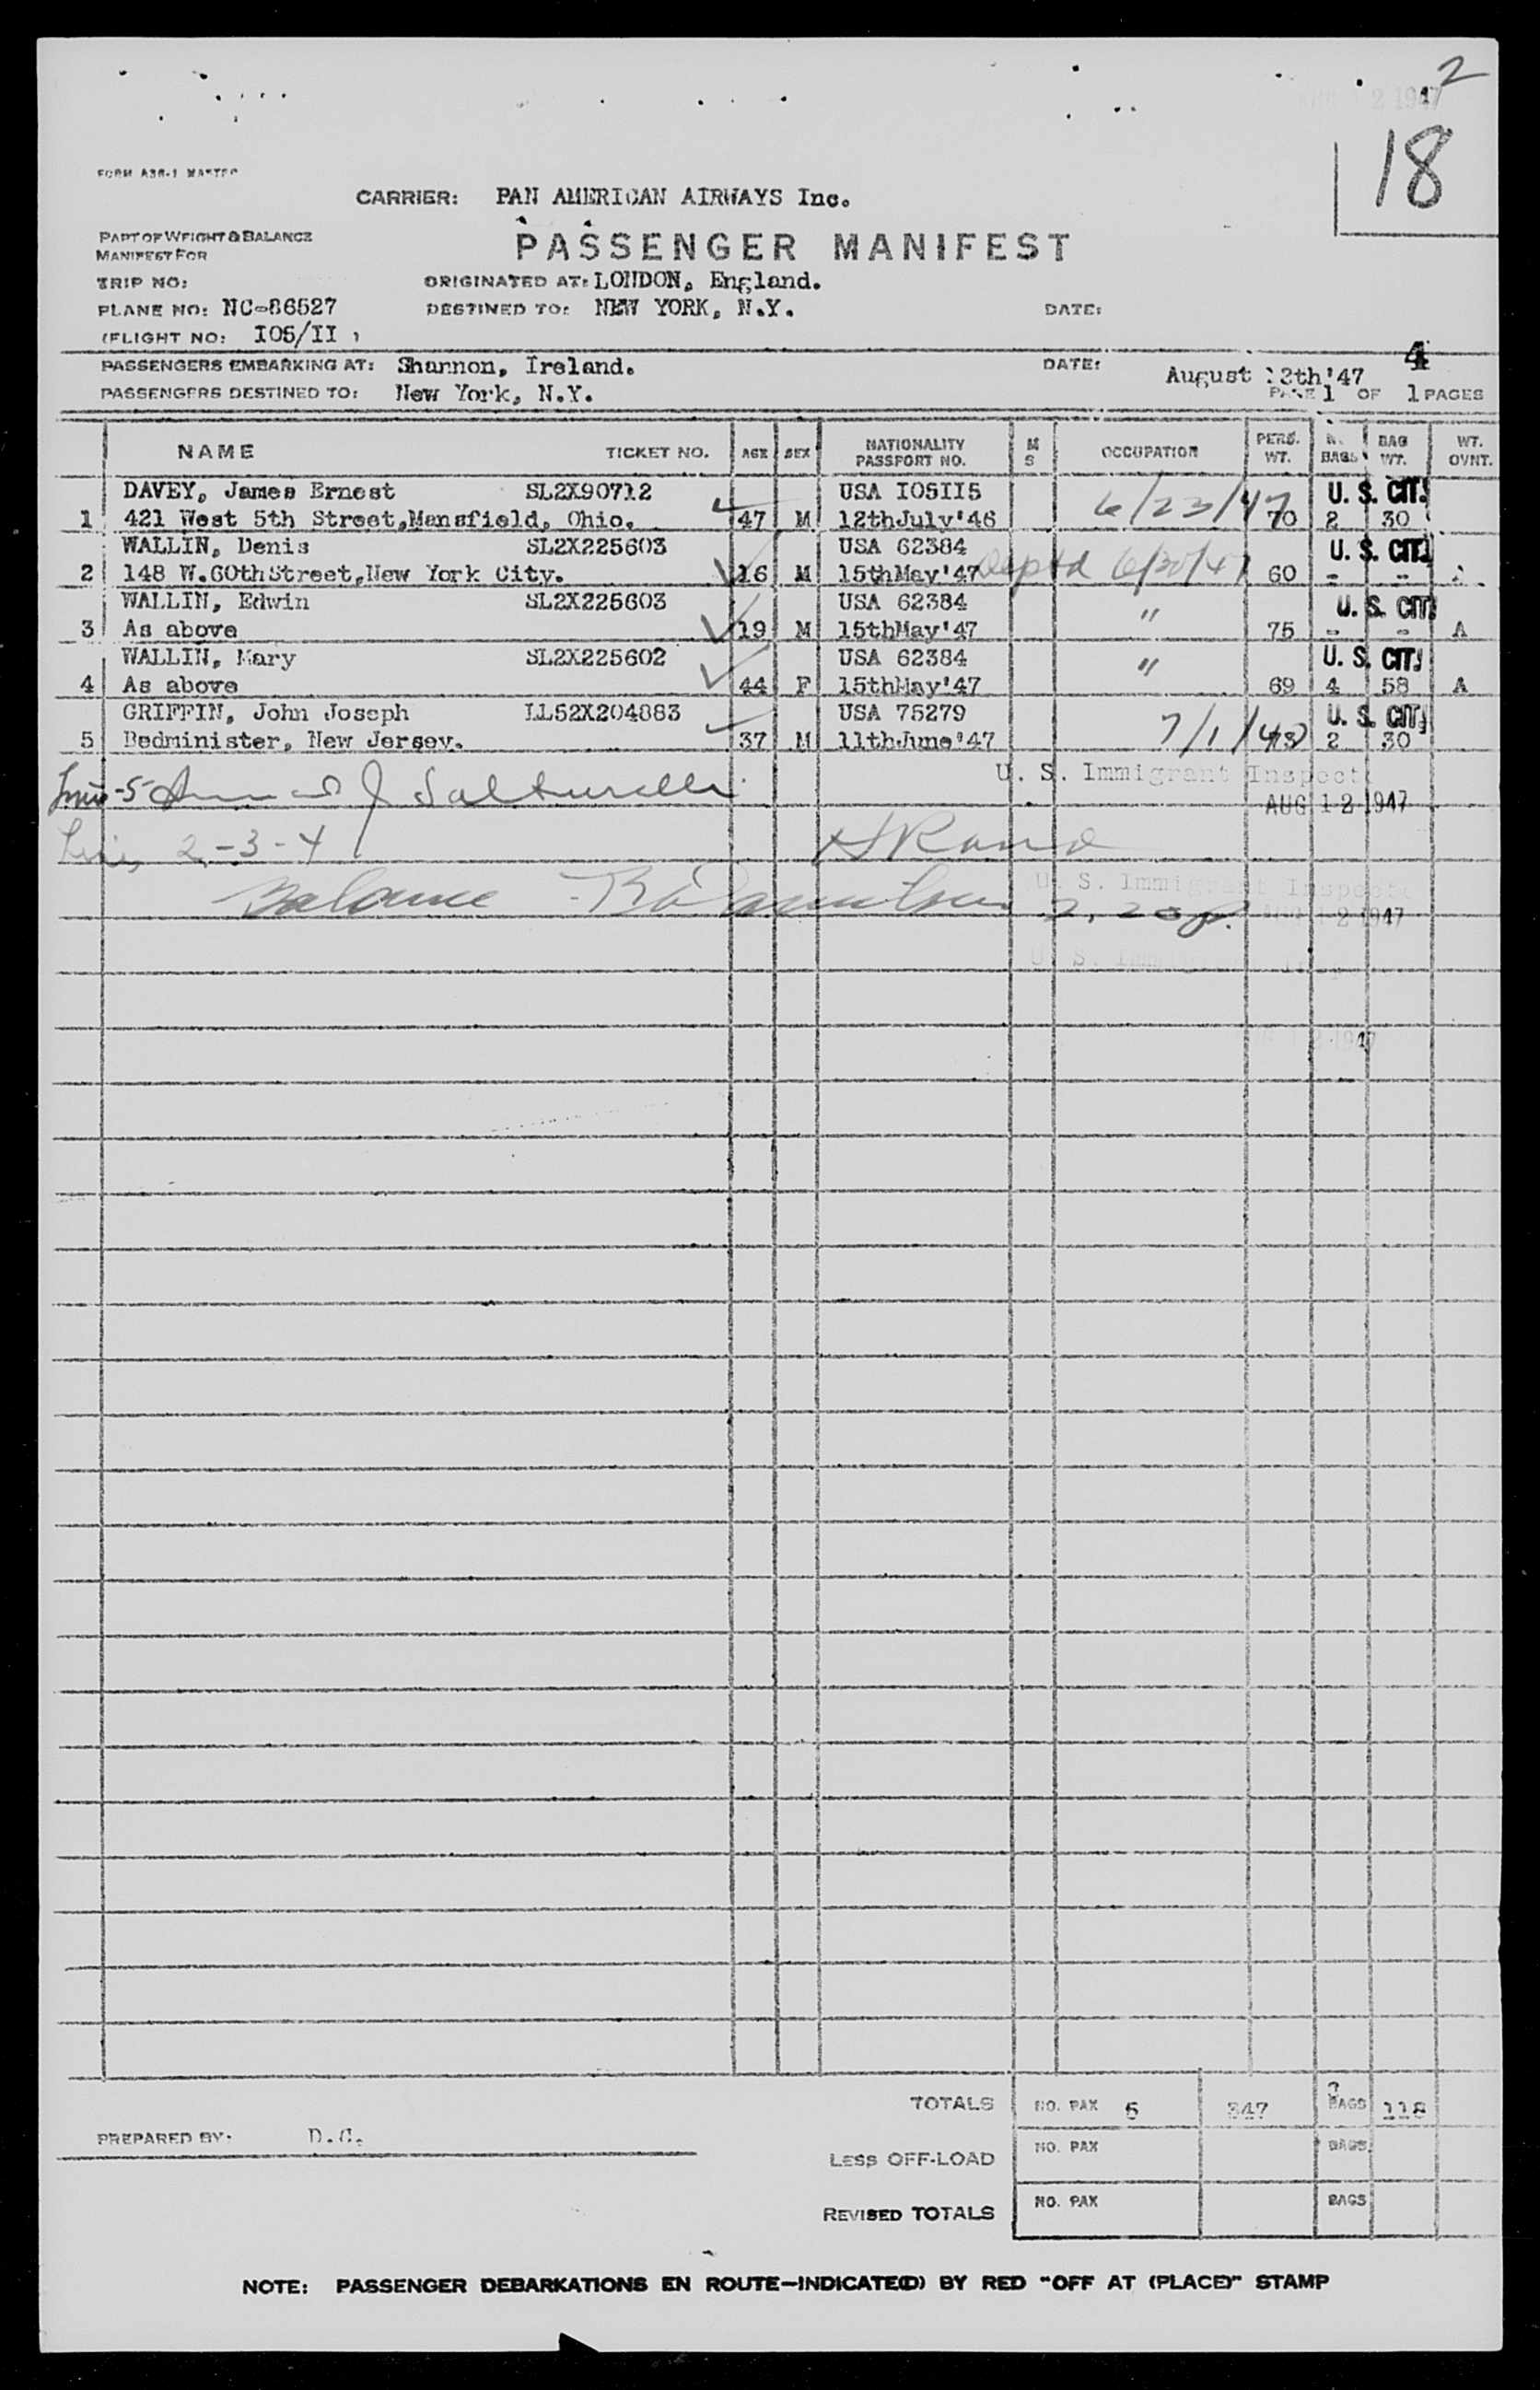 2
18
FORM A38-1 MASTER
CARRIER: PAN AMERICAN AIRWAYS Inc.
PART OF WEIGHT & BALANCE
MANIFEST FOR
PASSENGER MANIFEST
TRIP NO:
ORIGINATED AT: LONDON, England.
PLANE NO: NC-86527
DESTINED TO: NEW YORK, N.Y.
DATE:
(FLIGHT NO: I05/II )
PASSENGERS EMBARKING AT: Shannon, Ireland.
DATE: August 12th'47
4
PASSENGERS DESTINED TO: New York, N.Y.
PAGE 1 OF 1 PAGES
NAME TICKET NO. AGE SEX NATIONALITY PASSPORT NO. M S OCCUPATION PERS. WT. N. BAGS BAG WT. WT. OVNT.
DAVEY, James Ernest SL2X90712 USA I05II5 U. S. CIT.
1 421 West 5th Street,Mansfield, Ohio. 47 M 12thJuly'46 6/23/47 70 2 30
WALLIN, Denis SL2X225603 USA 62384 U. S. CIT.
2 148 W.60thStreet,New York City. 16 M 15thMay'47 Deptd 6/30/47 60 - -
WALLIN, Edwin SL2X225603 USA 62384 U. S. CIT.
3 As above 19 M 15thMay'47 " 75 - - A
WALLIN, Mary SL2X225602 USA 62384 U. S. CIT.
4 As above 44 F 15thMay'47 " 69 4 58 A
GRIFFIN, John Joseph LL52X204883 USA 75279 U. S. CIT.
5 Bedminister, New Jersey. 37 M 11thJune'47 7/1/47 73 2 30
U. S. Immigrant Inspect
Line -5
AUG 12 1947
Line 2-3-4
Balance
U. S. Immigrant Inspect
12 1947
U. S. Immigrant Inspec
2 1947
TOTALS NO. PAX 5 347 BAGS 118
PREPARED BY. D.C.
LESS OFF-LOAD NO. PAX BAGS
REVISED TOTALS NO. PAX BAGS
NOTE: PASSENGER DEBARKATIONS EN ROUTE—INDICATE(D) BY RED "OFF AT (PLACE)" STAMP